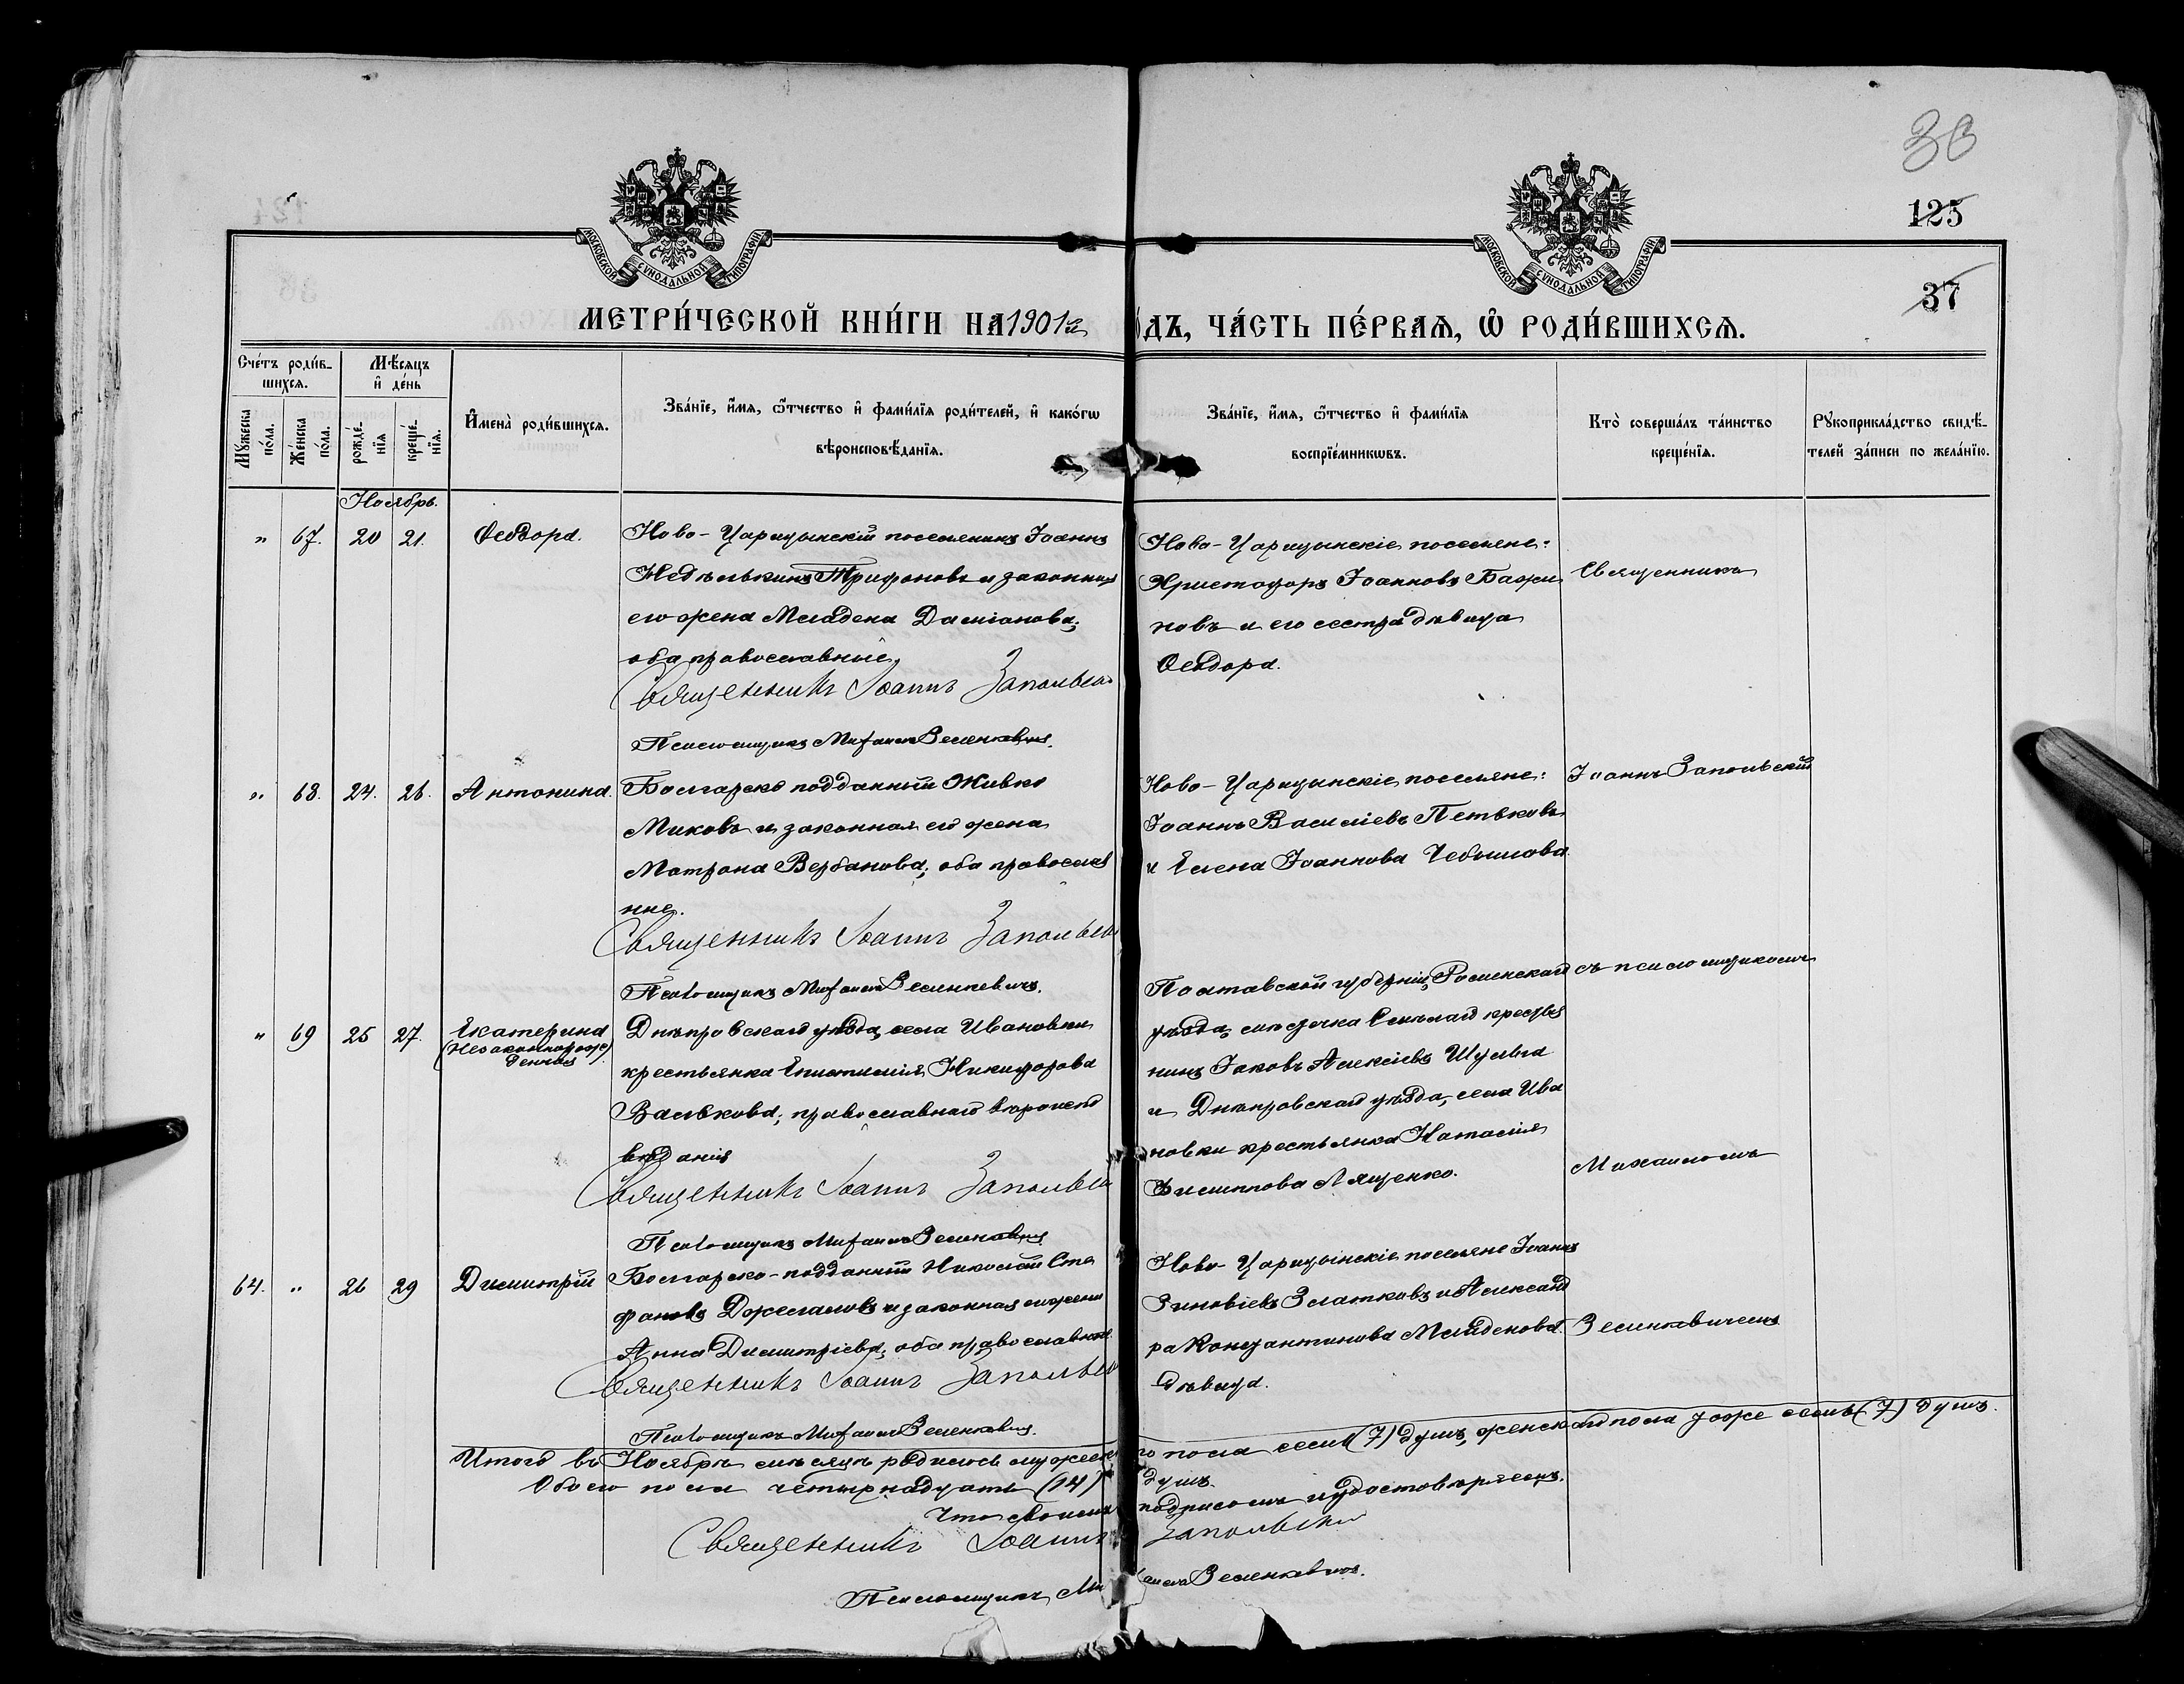 38
125
37
МОСКОВСКОЙ СѴНОДАЛЬНОЙ ТИПОГРАФІИ
МОСКОВСКОЙ СѴНОДАЛЬНОЙ ТИПОГРАФІИ
МЕТРИ́ЧЕСКОЙ КНИ́ГИ НА 1901й
ОДЪ, ЧА́СТЬ ПЕ́РВАѦ, Ѡ҆ РОДИ́ВШИХСѦ.
Сче́тъ роди́в-
шихсѧ.
Мѣ́сѧцъ
и҆ де́нь
Мꙋ́жеска по́ла.
Же́нска по́ла.
рожде́-
нїѧ
креще́-
нїѧ.
И҆мена̀ роди́вшихсѧ.
Зва́нїе, и҆́мѧ, ѻ҆́тчество и҆ фами́лїѧ роди́телей, и҆ како́гѡ
вѣроисповѣ́данїѧ.
Зва́нїе, и҆́мѧ, ѻ҆́тчество и҆ фами́лїѧ
воспрїе́мникѡвъ.
Кто̀ соверша́лъ та́инство
креще́нїѧ.
Рꙋкоприкла́дство свидѣ́-
телей за́писи по жела́нїю.
Ноябрь.
„ 67. 20 21. Ѳеодора.
Ново-Царицынскій поселянинъ Іоаннъ
Недѣлькинъ Трифоновъ и законная
его жена Младена Даміанова;
оба православные.
Священникъ Іоаннъ Запольскі
Псаломщикъ Михаилъ Зеленкевичъ.
Ново-Царицынскіе поселяне:
Христофоръ Іоанновъ Бажи
новъ и его сестра дѣвица
Ѳеодора.
Священникъ
„ 68. 24. 26. Антонина.
Болгарско подданный Живко
Миковъ и законная его жена
Матрона Вербанова; оба правосла
ные.
Священникъ Іоаннъ Запольскі
Псаломщикъ Михаилъ Зеленкевичъ.
Ново-Царицынскіе поселяне:
Іоаннъ Василіевъ Петьковъ
и Елена Іоаннова Чебышова
Іоаннъ Запольскій
„ 69 25 27. Екатерина
(Незаконнорож
денная)
Днѣпровскаго уѣзда, села Ивановки
крестьянка Епистимія Никифорова
Валькова; православнаго вѣроиспо
вѣданія
Священникъ Іоаннъ Запольскі
Псаломщикъ Михаилъ Зеленкевичъ
Полтавской губерніи, Роменскаго
уѣзда, мѣстечка Смѣлаго крестья
нинъ Іаковъ Алексіевъ Шульга
и Днѣпровскаго уѣзда, села Ива
новки крестьянка Наталія
Филиппова Лященко.
съ псаломщикомъ
Михаиломъ
64. „ 26 29 Димитрій
Болгарско-подданный Николай Сте
фановъ Дожелаловъ и законная его жена
Анна Димитріева; оба православные.
Священникъ Іоаннъ Запольскі
Псаломщикъ Михаилъ Зеленкевичъ.
Ново-Царицынскіе поселяне Іоаннъ
Зиновіевъ Златковъ и Александ
ра Константинова Младенова
дѣвица.
Зеленкевичемъ
Итого въ Ноябрѣ мѣсяцѣ родилось мужеска го пола семь (7) душъ, женскаго пола тоже семь (7) душъ.
Обоего пола четырнадцать (14) душъ.
Что своимъ подписомъ и удостовѣряемъ.
Священникъ Іоаннъ Запольскій
Псаломщикъ Михаилъ Зеленкевичъ.